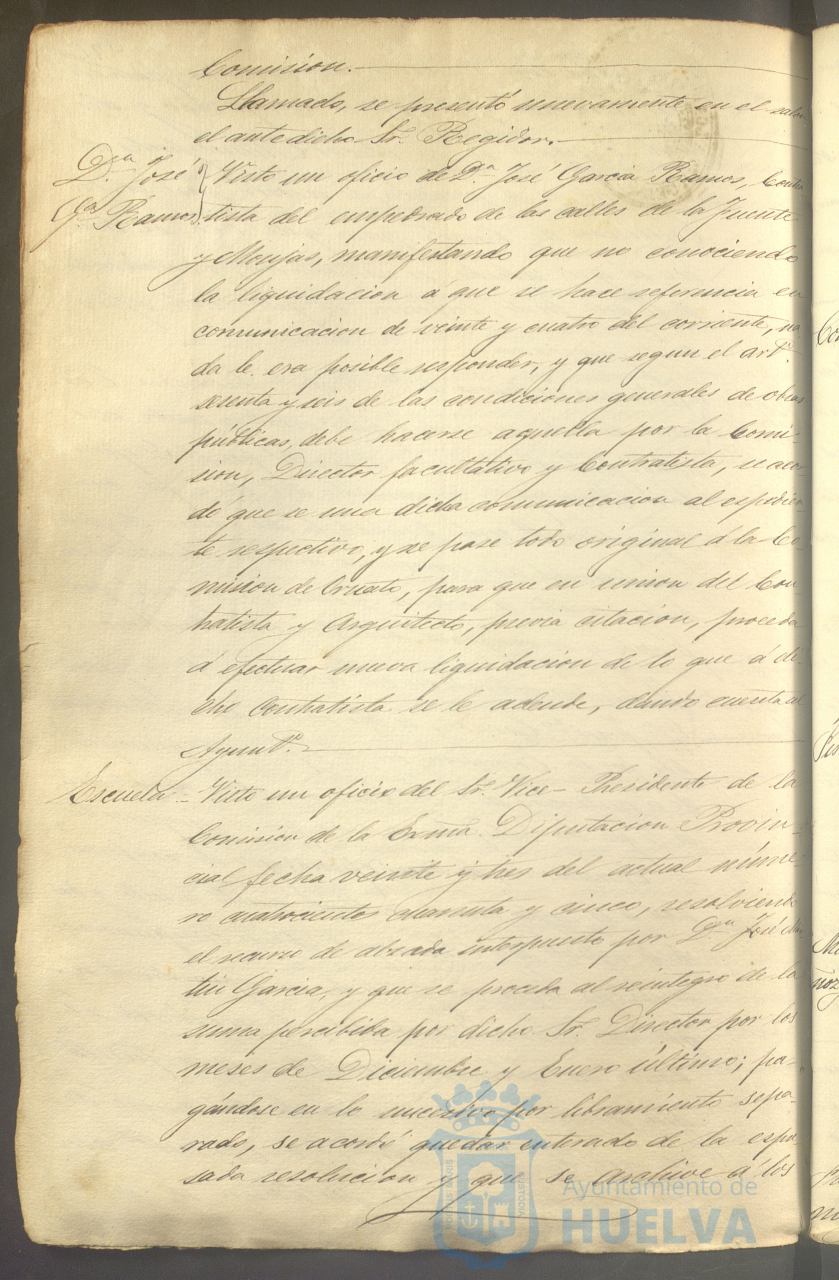 Comision.
Llamado, se presentó nuevamente en el salon
el antedicho Sr. Regidor.
Dn. José
Ga. Ramos
Visto un oficio de Dn. José Garcia Ramos, Contra
tista del empedrado de las calles de la Fuente
y Monjas, manifestando que no conociendo
la liquidacion á que se hace referencia en
comunicacion de veinte y cuatro del corriente, na
da le era posible responder, y que segun el artº.
senta y seis de las condiciones generales de obras
públicas, debe hacerse aquella por la Comi-
sion, Director facultativo y Contratista, se acor-
dó que se una dicha comunicacion al espedien-
te respectivo, y se pase todo original á la Co-
mision de Ornato, para que en union del Con-
tratista y Arquitecto, prévia citacion, proceda
á efectuar nueva liquidacion de lo que á di-
cho Contratista se le adeude, dando cuenta al
Ayuntº.
Escuela - Visto un oficio del Sr. Vice-Presidente de la
Comision de la Exma. Diputacion Provin-
cial fecha veinte y tres del actual núme-
ro cuatrocientos cuarenta y cinco, resolviendo
el recurso de alzada interpuesto por Dn. José Mar
tin Garcia, y que se proceda al reintegro de la
suma percibida por dicho Sr. Director por los
meses de Diciembre y Enero último; pa-
gándose en lo sucesivo por libramiento sepa-
rado, se acordó quedar enterado de la espre
sada resolucion y que se archive á los
Ayuntamiento de
HUELVA